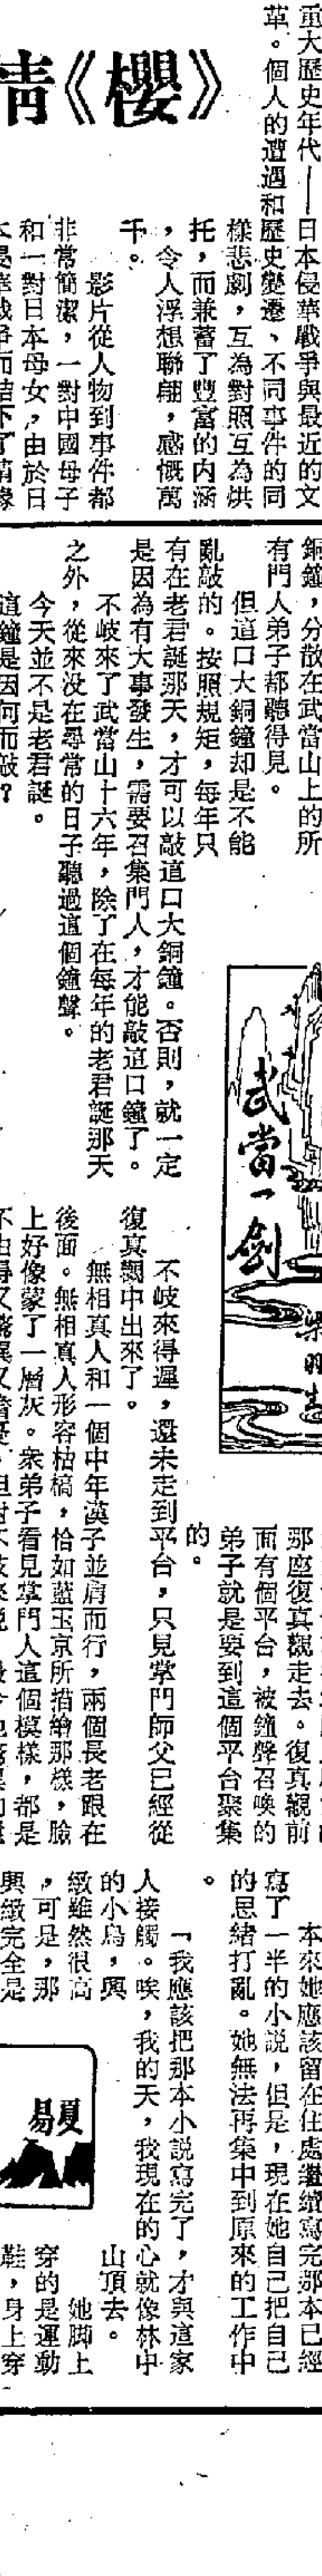 情《櫻》
重大歷史年代——日本侵華戰爭與最近的文
革。個人的遭遇和歷史變遷、不同事件的同
樣悲劇,互為對照互為烘
托,而兼蓄了豐富的內涵
,令人浮想聯翩,感慨萬
千。
影片從人物到事件都
非常簡潔,一對中國母子
和一對日本母女,由於日
本侵華戰爭而結下了
銅鐘,分散在武當山上的所
有門人弟子都聽得見。
但這口大銅鐘却是不能
亂敲的。按照規矩,每年只
有在老君誕那天,才可以敲這口大銅鐘。否則,就一定
是因為有大事發生,需要召集門人,才能敲這口鐘了。
不岐來了武當山十六年,除了在每年的老君誕那天
之外,從來没在尋常的日子聽過這個鐘聲。
今天並不是老君誕。
這鐘是因何而敲?
武當一劍
梁羽生
那座復真觀走去。復真觀前
面有個平台,被鐘聲召喚的
弟子就是要到這個平台聚集
的。
不岐來得遲,還未走到平台,只見掌門師父已經從
復真觀中出來了。
無相真人和一個中年漢子並肩而行,兩個長老跟在
後面。無相真人形容枯槁,恰如藍玉京所描繪那樣,臉
上好像蒙了一層灰。衆弟子看見掌門人這個模樣,都是
不由得又驚異又
本來她應該留在住處繼續寫完那本已經
寫了一半的小説,但是,現在她自己把自己
的思緒打亂。她無法再集中到原來的工作中
。
「我應該把那本小説寫完了,才與這家
人接觸。唉,我的天,我現在的心就像林中
的小鳥,興
緻雖然很高
,可是,那
興緻完全是
山頂去。
她脚上
穿的是運動
鞋,身上穿
夏易